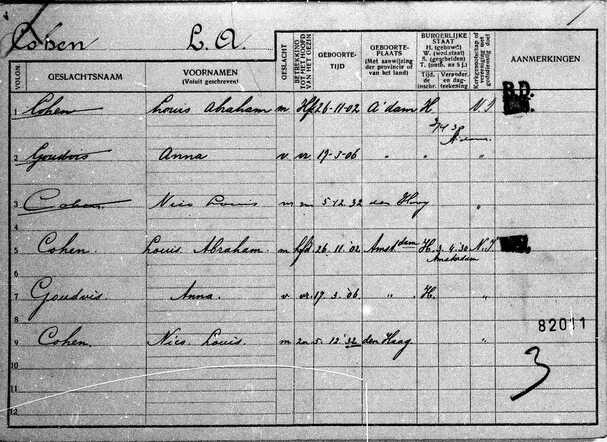 Cohen L. A.
VOLGN. GESLACHTSNAAM VOORNAMEN (Voluit geschreven) GESLACHT BETREKKING TOT HET HOOFD VAN HET GEZIN GEBOORTE-TIJD GEBOORTE-PLAATS (Met aanwijzing der provincie of van het land) BURGERLIJKE STAAT H. (gehuwd) W. (wed.staat) S. (gescheiden) T. (ontb. na s.) Tijd. de inschr. Verander. en dag-teekening Kerkgenootschap of AANMERKINGEN
1 Cohen Louis Abraham m Hfd 26-11-02 A'dam H. N.I. B.D.
2 Goudvis Anna v vr. 19-3-06 " " "
3 Cohen Nico Louis m zn 5 12 32 den Haag "
5 Cohen. Louis Abraham. m hfd 26. 11. 02 Amstdam H. 3. 4. 30 N.I
Amsterdam
7 Goudvis Anna. v vr. 19. 3. '06 " " H. "
82011
9 Cohen. Nico Louis. m zn 5. 12 '32 den Haag "
3
10
11
12